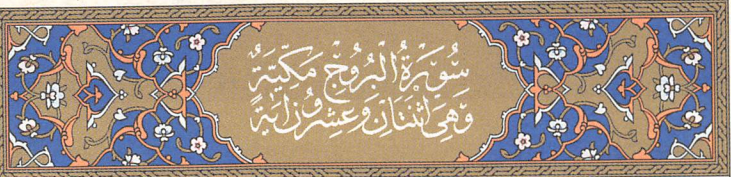 سُورَةُ الْبُرُوجِ مَكِّيَّةٌ
وَهِىَ اثْنَتَانِ وَعِشْرُونَ اٰيَةً